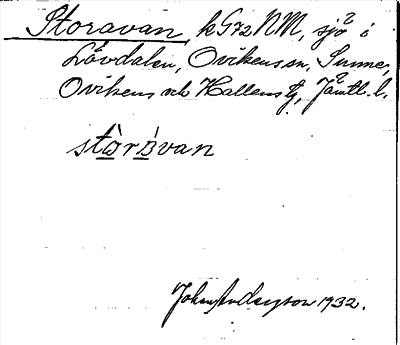 Storavan k G72 NM, sjö i
Lövdalen, Ovikens sn, Sunne,
Ovikens o. Hallens tg, Jämtl. l.
stòrávan
Johan Anderson 1932.